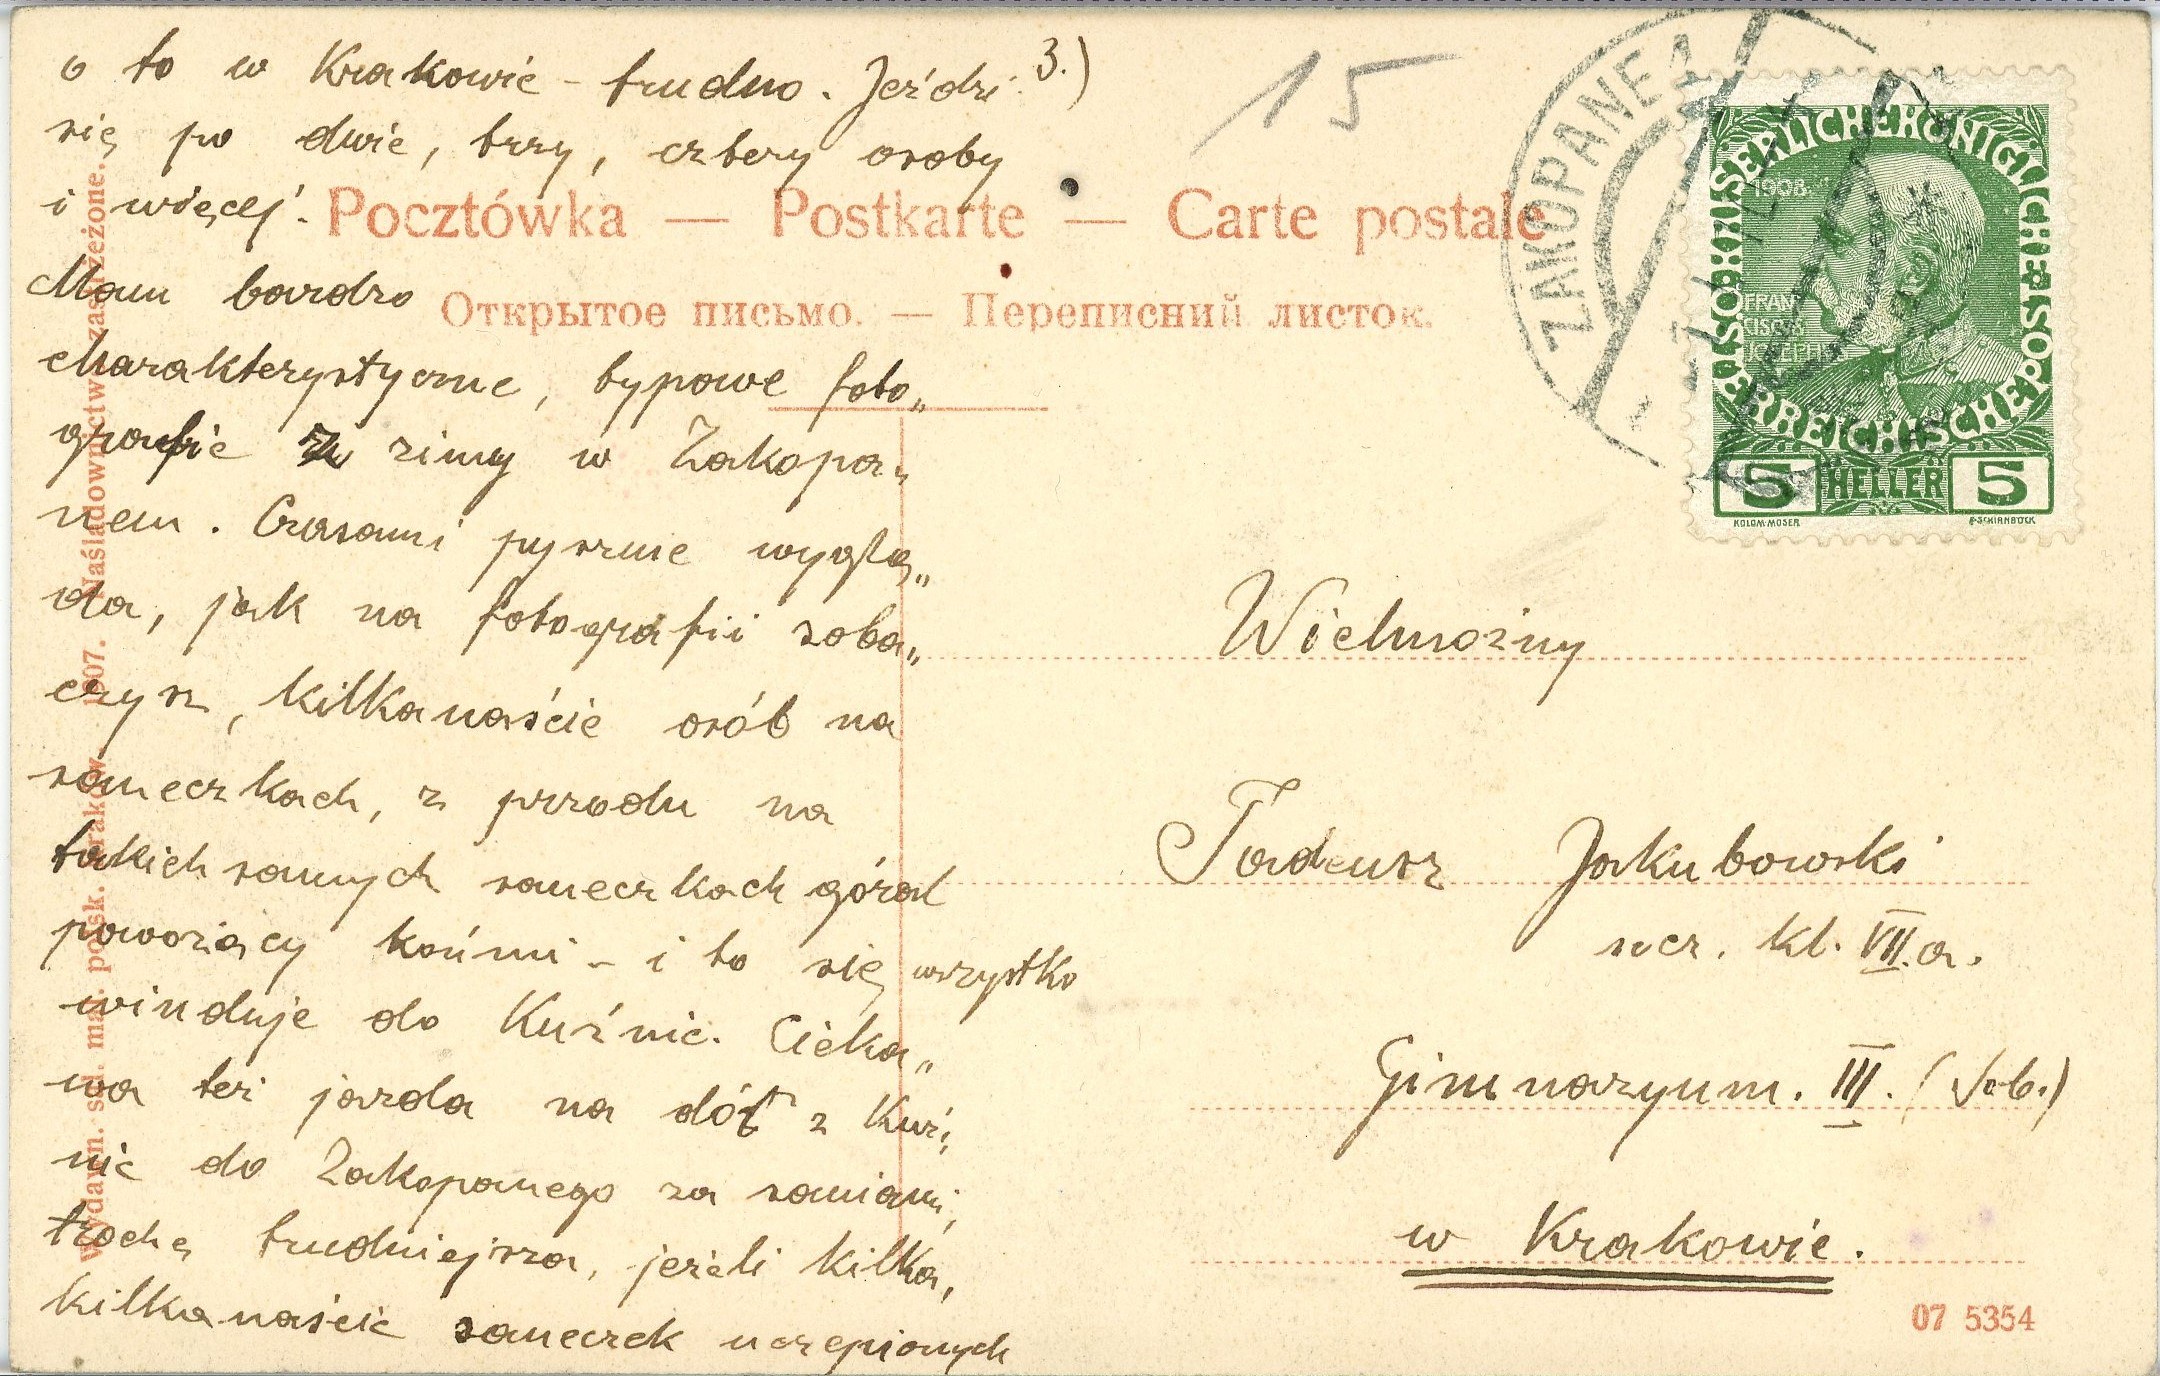 o to w Krakowie – trudno. Jeździ 3.)
się po dwie, trzy, cztery osoby
i więcej.
Pocztówka — Postkarte — Carte postale
Mam bardzo
Открытое письмо. — Переписний листок.
charakterystyczne, typowe foto„
grafie z zimy w Zakopa„
nem. Czasami pysznie wyglą„
da, jak na fotografii zoba„
czysz, kilkanaście osób na
saneczkach, z przodu na
takich samych saneczkach góral
powożący końmi – i to się wszystko
winduje do Kuźnic. Cieka„
wa też jazda na dół z Kuź„
nic do Zakopanego za saniami,
trochę trudniejsza, jeżeli kilka,
kilkanaście saneczek uczepionych
Wydawn. sal. mal. polsk. Kraków 1907. Naśladownictwo zastrzeżone.
15
ZAKOPANE 1
KAISERLICHE KÖNIGLICHE ÖSTERREICHISCHE POST
1908
FRAN
CISCVS
IOSEPH I
5 HELLER 5
KOLOM·MOSER
F·SCHIRNBÖCK
Wielmożny
Tadeusz Jakubowski
ucz. kl. VII.a.
Gimnazyum. III. (Sob.)
w Krakowie.
07 5354